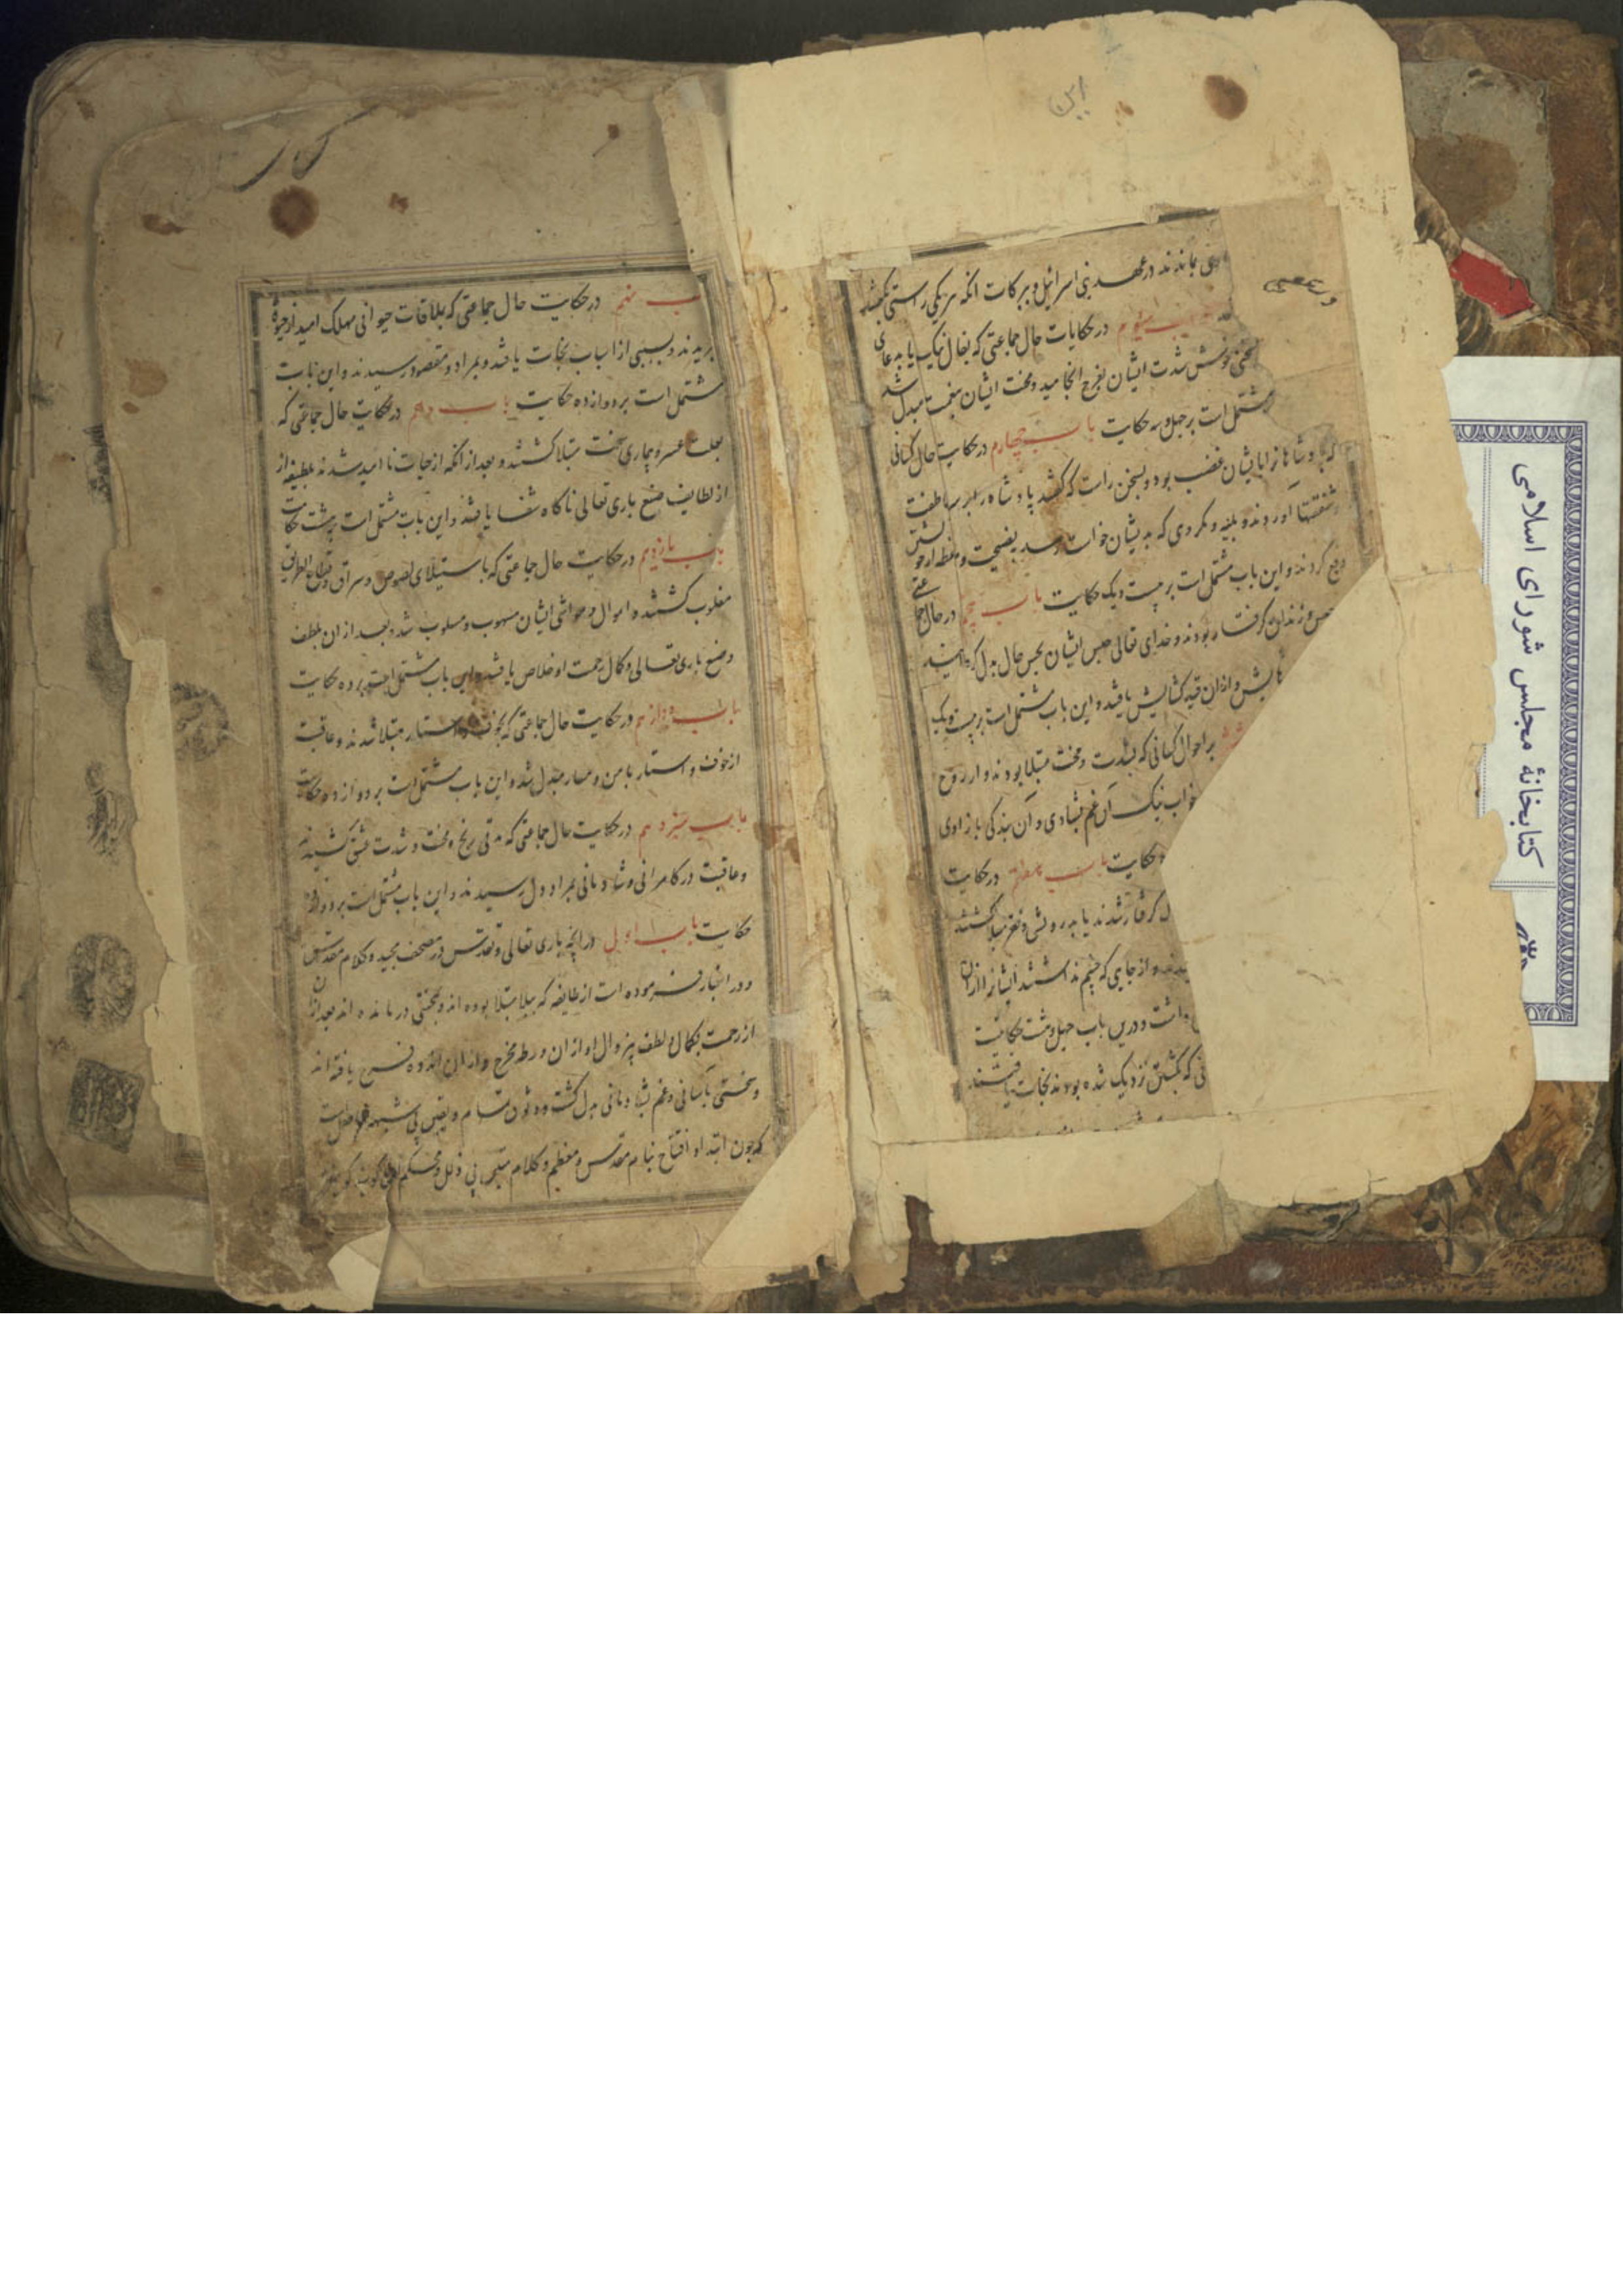 این
بماندند در عهد بنی اسرائیل و ببرکات آنکه هر یکی راستی بگفتند
باب سیوم در حکایات حال جماعتی که بفال نیک یا بدعای
خوش شدت ایشان بفرج انجامید و محنت ایشان بنعمت مبدل شد
مشتمل است بر چهل و سه حکایت باب چهارم در حکایت حال کسانی
که پادشاهانرا با ایشان غضب بود و بسخن راست که گفتند پادشاه را بر سر عاطفت
آوردند و بلیه و مکروهی که بدیشان خواست رسید بنصیحت و موعظه از خویشتن
دفع کردند و این باب مشتمل است بر بیست و یک حکایت باب پنجم در حال جماعتی
حبس و زندان گرفتار بودند و خدای تعالی حبس ایشان بحسن حال بدل گردانید
و از ان قید گشایش یافتند و این باب مشتمل است بر بیست و یک
بر احوال کسانی که بشدت و محنت مبتلا بودند و از روح
خواب نیک آن غم بشادی و آن بندگی بازادی
حکایت باب هفتم در حکایت
گرفتار شدند یا بدرویشی و فقر مبتلا گشتند
و از جایی که چشم نداشتند ایشانرا از ان
داشت و درین باب چهل و هشت حکایت
که بکشتن نزدیک شده بودند نجات یافتند
باب نهم در حکایت حال جماعتی که بملاقات حیوانی مهلک امید از حیوة
ببریدند و بسببی از اسباب نجات یافتند و بمراد و مقصود رسیدند و این باب
مشتمل است بر دوازده حکایت باب دهم در حکایت حال جماعتی که
بعلت عسر و بیماری سخت مبتلا گشتند و بعد از آنکه از حیات ناامید شدند بلطیفه از
از لطایف صنع باری تعالی ناگاه شفا یافتند و این باب مشتمل است بر هشت حکایت
باب یازدهم در حکایت حال جماعتی که باستیلای لصوص و سراق و قطاع الطریق
مغلوب گشتند و اموال و مواشی ایشان منهوب و مسلوب شد و بعد از ان بلطف
و صنع باری تعالی و کمال رحمت او خلاص یافتند و این باب مشتمل است بر ده حکایت
باب دوازدهم در حکایت حال جماعتی که بخوف و استتار مبتلا شدند و عاقبت
از خوف و استتار بامن و مسار مبدل شد و این باب مشتمل است بر دوازده حکایت
باب سیزدهم در حکایت حال جماعتی که مدتی رنج و محنت و شدت عشق کشیدند
و عاقبت در کامرانی و شادمانی بمراد دل رسیدند و این باب مشتمل است بر دوازده
حکایت باب اول در آنچه باری تعالی و تقدس در مصحف مجید و کلام مقدس
و در اخبار فرموده است از طایفه که ببلا مبتلا بوده اند و بمحنتی درمانده اند بعد از ان
از رحمت بکمال و لطف بیزوال او از ان ورطه مخرج و از ان اندوه فرج یافته اند
و سختی بآسانی و غم بشادمانی بدل گشت و وثوق تمام و یقین بی شبهه حاصل است
که چون ابتدا و افتتاح بنام مقدس و معظم و کلام
کتابخانهٔ مجلس شورای اسلامی